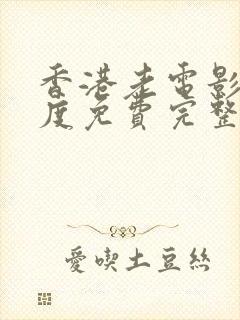 香港走電影
度免費完整
愛喫土豆絲